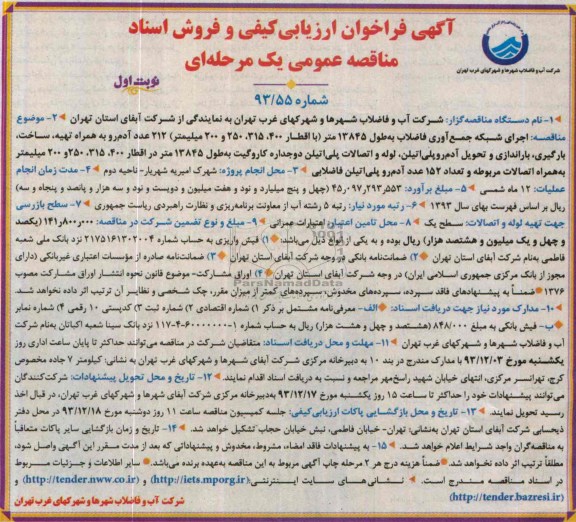 آگهی فراخوان ارزیابی کیفی و فروش اسناد
مناقصه عمومی یک مرحله‌ای
نوبت اول
شماره ۹۳/۵۵
شرکت آب و فاضلاب شهرها و شهرکهای غرب تهران
۱- نام دستگاه مناقصه‌گزار: شرکت آب و فاضلاب شهرها و شهرکهای غرب تهران به نمایندگی از شرکت آبفای استان تهران ۲- موضوع
مناقصه: اجرای شبکه جمع‌آوری فاضلاب به‌طول ۱۳۸۴۵ متر (با اقطار ۴۰۰، ۳۱۵، ۲۵۰ و ۲۰۰ میلیمتر) ۲۱۲ عدد آدم‌رو به همراه تهیه، ساخت،
بارگیری، باراندازی و تحویل آدم‌رو پلی‌اتیلن، لوله و اتصالات پلی‌اتیلن دوجداره کاروگیت به‌طول ۱۳۸۴۵ متر در اقطار ۴۰۰، ۳۱۵، ۲۵۰ و ۲۰۰ میلیمتر
به‌همراه اتصالات مربوطه و تعداد ۱۵۲ عدد آدم‌رو پلی‌اتیلن فاضلابی ۳- محل انجام پروژه: شهرک امیریه شهریار- ناحیه دوم ۴- مدت زمان انجام
عملیات: ۱۲ ماه شمسی ۵- مبلغ برآورد: ۴۵٫۰۹۷٫۲۹۳٫۵۵۳ (چهل و پنج میلیارد و نود و هفت میلیون و دویست و نود و سه هزار و پانصد و پنجاه و سه)
ریال بر اساس فهرست بهای سال ۱۳۹۳ ۶- رتبه مورد نیاز: رتبه ۵ رشته آب از معاونت برنامه‌ریزی و نظارت راهبردی ریاست جمهوری ۷- سطح بازرسی
جهت تهیه لوله و اتصالات: سطح یک ۸- محل تامین اعتبار: اعتبارات عمرانی ۹- مبلغ و نوع تضمین شرکت در مناقصه: ۱۴۱٫۸۰۰٫۰۰۰ (یکصد
و چهل و یک میلیون و هشتصد هزار) ریال بوده و به یکی از انواع ذیل می‌باشد: ۱) فیش واریزی به حساب شماره ۲۱۷۵۱۶۱۳۰۲۰۰۴ نزد بانک ملی شعبه
فاطمی به‌نام شرکت آبفای استان تهران ۲) ضمانت‌نامه بانکی در وجه شرکت آبفای استان تهران ۳) ضمانت‌نامه صادره از مؤسسات اعتباری غیربانکی (دارای
مجوز از بانک مرکزی جمهوری اسلامی ایران) در وجه شرکت آبفای استان تهران ۴) اوراق مشارکت- موضوع قانون نحوه انتشار اوراق مشارکت مصوب
۱۳۷۶ ضمناً به پیشنهادهای فاقد سپرده، سپرده‌های مخدوش، سپرده‌های کمتر از میزان مقرر، چک شخصی و نظایر آن ترتیب اثر داده نخواهد شد.
۱۰- مدارک مورد نیاز جهت دریافت اسناد: الف- معرفی‌نامه مشتمل بر ذکر ۱) شماره اقتصادی ۲) شماره ثبت ۳) کدپستی ۱۰ رقمی ۴) شماره نمابر
ب- فیش بانکی به مبلغ ۸۴۸/۰۰۰ (هشتصد و چهل و هشت هزار) ریال به حساب شماره ۱-۶۰۰۰۰۰۰۰-۴-۱۱۷ نزد بانک سینا شعبه اکباتان به‌نام شرکت
آب و فاضلاب شهرها و شهرکهای غرب تهران ۱۱- مهلت و محل دریافت اسناد: متقاضیان شرکت در مناقصه می‌توانند حداکثر تا پایان ساعت اداری روز
یکشنبه مورخ ۹۳/۱۲/۰۳ با مدارک مندرج در بند ۱۰ به دبیرخانه مرکزی شرکت آبفای شهرها و شهرکهای غرب تهران به نشانی: کیلومتر ۷ جاده مخصوص
کرج، تهرانسر مرکزی، انتهای خیابان شهید راسخ‌مهر مراجعه و نسبت به دریافت اسناد اقدام نمایند. ۱۲- تاریخ و محل تحویل پیشنهادات: شرکت‌کنندگان
می‌توانند پیشنهادات خود را حداکثر تا ساعت ۱۵ روز یکشنبه مورخ ۹۳/۱۲/۱۷ به‌دبیرخانه مرکزی شرکت آبفای شهرها و شهرکهای غرب تهران، در قبال اخذ
رسید تحویل نمایند. ۱۳- تاریخ و محل بازگشایی پاکات ارزیابی‌کیفی: جلسه کمیسیون مناقصه ساعت ۱۱ روز دوشنبه مورخ ۹۳/۱۲/۱۸ در محل دفتر
ذیحسابی شرکت آبفای استان تهران به‌نشانی: تهران- خیابان فاطمی، نبش خیابان حجاب تشکیل خواهد شد. ۱۴- تاریخ و زمان بازگشایی سایر پاکات متعاقباً
به مناقصه‌گران واجد شرایط اعلام خواهد شد. ۱۵- به پیشنهادات فاقد امضاء، مشروط، مخدوش و پیشنهاداتی که بعد از مدت مقرر این آگهی واصل شود،
مطلقاً ترتیب اثر داده نخواهد شد. ضمناً هزینه درج هر ۲ مرحله چاپ آگهی مربوط به این مناقصه به‌عهده برنده می‌باشد. سایر اطلاعات و جزئیات مربوط
در اسناد مناقصه مندرج است. نشانی‌های سایت اینترنتی: (http://iets.mporg.ir) و (http://tender.nww.co.ir) و
(http://tender.bazresi.ir)
شرکت آب و فاضلاب شهرها و شهرکهای غرب تهران
ParsNamadData